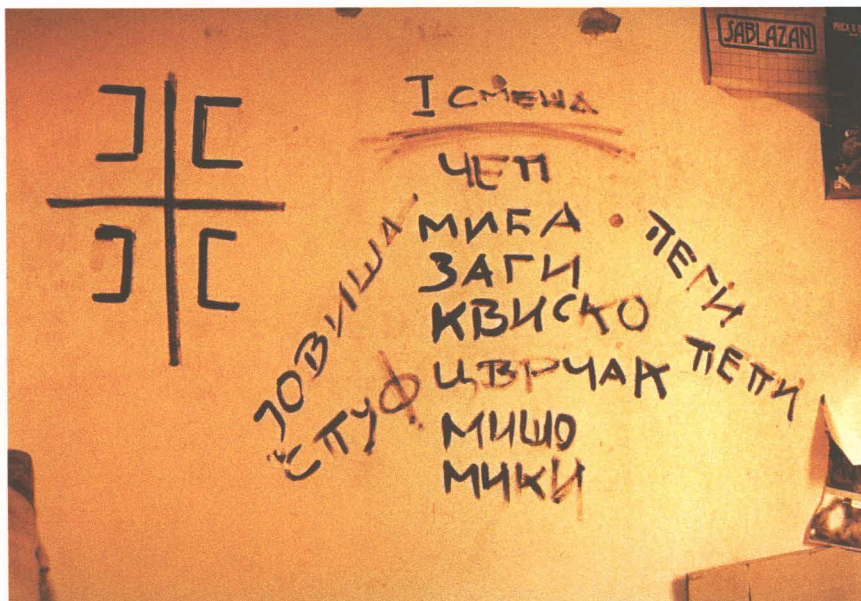 SABLAZAN
I СМЕНА
ЧЕП
МИБА
ЗАГИ
КВИСКО
ЦВРЧАК
МИШО
МИКИ
ЈОВИША
СПУФ
ПЕГИ
ПЕПИ